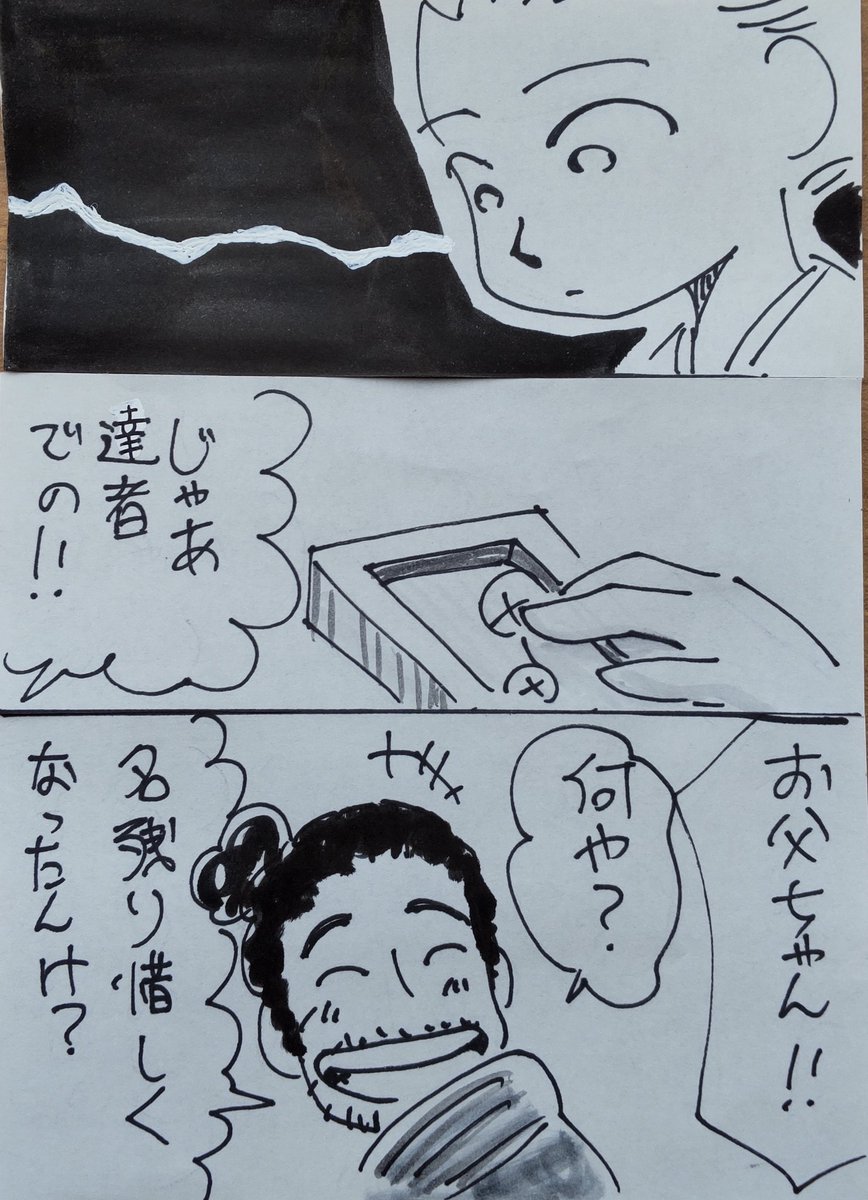 じゃあ
達者
での!!
お父ちゃん!!
何や?
名残り惜しく
なったんけ?